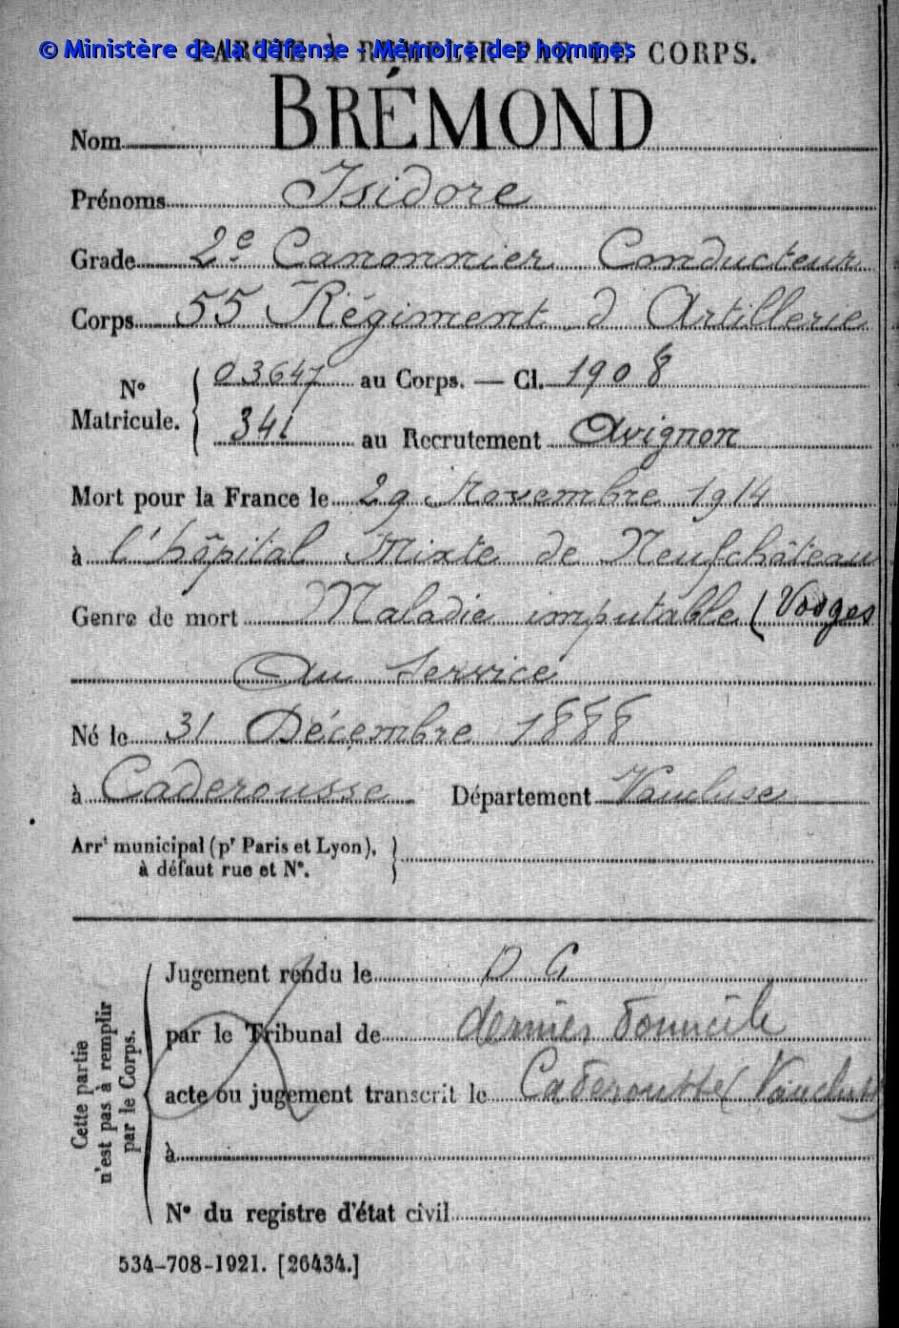 © Ministère de la défense - Mémoire des hommes
PARTIE À REMPLIR PAR LE CORPS.
Nom BRÉMOND
Prénoms Isidore
Grade 2e Canonnier Conducteur
Corps 55 Régiment d'Artillerie
No Matricule. { 03647 au Corps. — Cl. 1908
341 au Recrutement Avignon
Mort pour la France le 29 Novembre 1914
à l'hôpital Mixte de Neufchâteau
Genre de mort Maladie imputable (Vosges
Au Service
Né le 31 Décembre 1888
à Caderousse Département Vaucluse
Arrt municipal (pr Paris et Lyon),
à défaut rue et No.
Cette partie
n'est pas à remplir
par le Corps.
Jugement rendu le D G
par le Tribunal de dernier domicile
acte ou jugement transcrit le Caderousse (Vaucluse)
à
No du registre d'état civil
534-708-1921. [26434.]